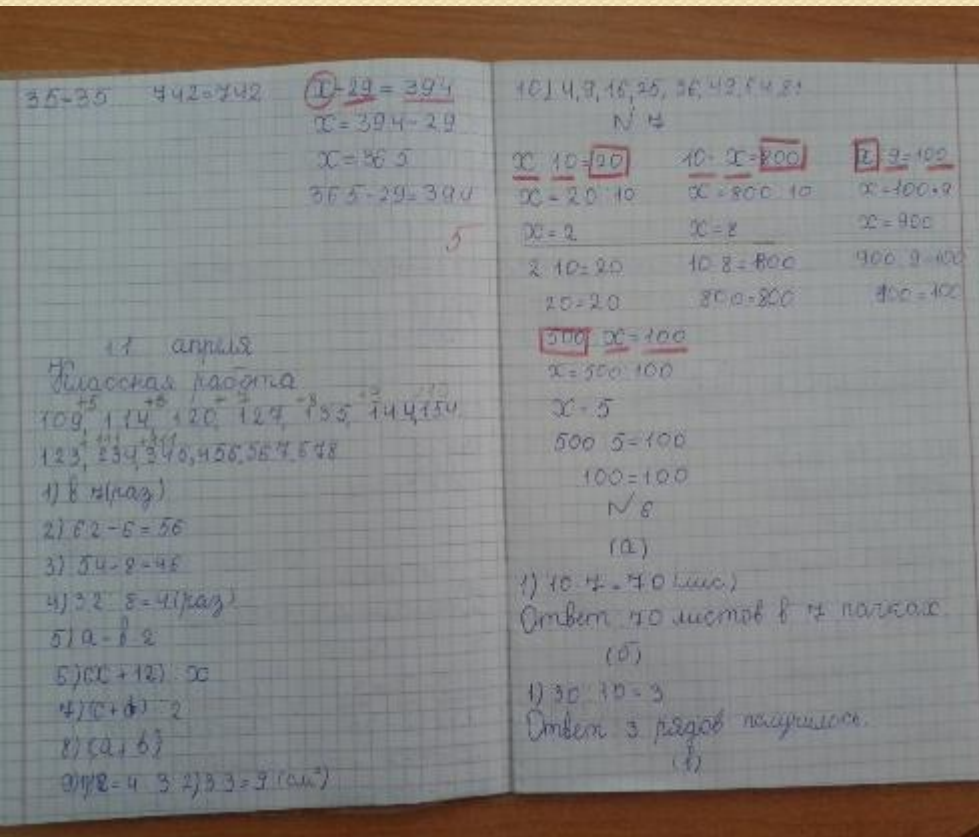 35=35 742=742 x-29=394
x=394-29
x=365
365-29=394
5
11 апреля
Классная работа
+5 +6 +7 +8 +9 +10
109, 114, 120, 127, 135, 144, 154.
+111 +111
123, 234, 345, 456, 567, 678
1) в 7(раз)
2) 62-6=56
3) 54-8=46
4) 32 8=4(раз)
5) a-b 2
6) (x+12) x
7) 2
8) (a+b)
=4 3 2) 3 3=9 (см²)
10) 4, 9, 16, 25, 36, 49, 64, 81
№ 7
x 10=20 10· x=800 x 9=100
x=20 10 x=800 10 x=100·9
x=2 x=8 x=900
2 10=20 10 8=800 900 9=100
20=20 800=800 100=100
500 x=100
x=500 100
x=5
500 5=100
100=100
№ 6
(а)
1) 10 7=70 (лис.)
Ответ 70 листов в 7 пачках.
(б)
1) 30:10=3
Ответ 3 рядов получилось.
(в)